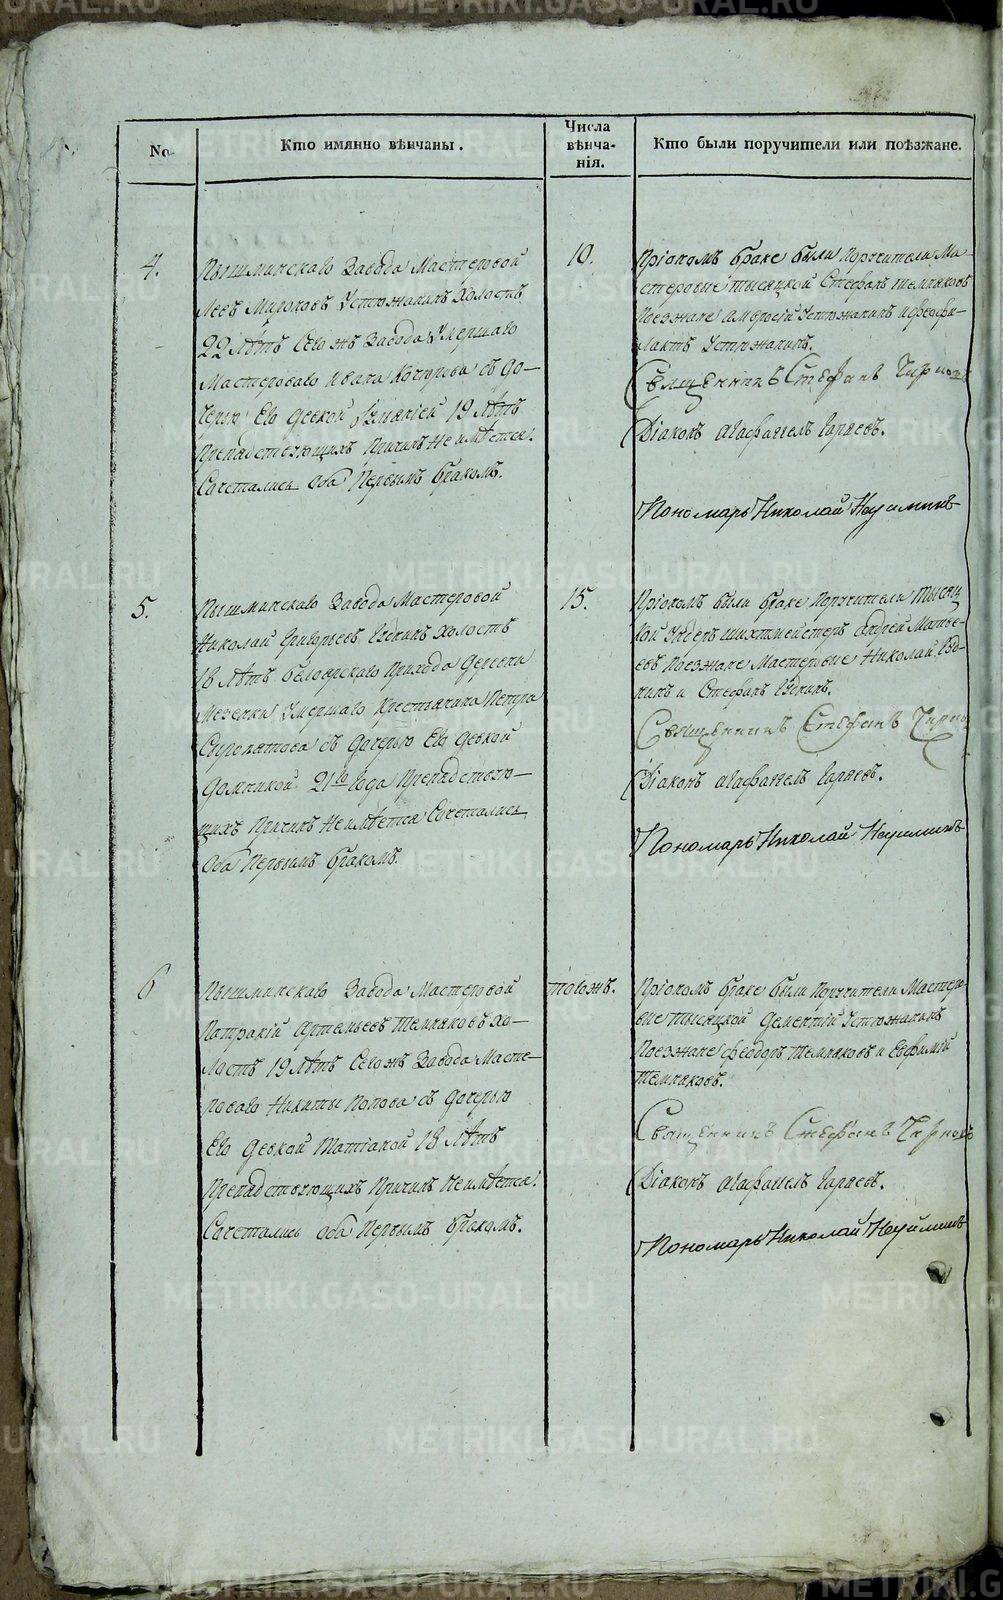 METRIKI.GASO-URAL.RU
№
Кто имянно вѣнчаны.
Числа
вѣнча-
нія.
Кто были поручители или поѣзжане.
4.
Пышминскаго Завода Мастеровой
Левъ Мироновъ Устюжанинъ Холостъ
22 Лѣтъ Сегожъ Завода Умершаго
Мастероваго Ивана с До-
черью Его Девкой 19 Лѣтъ
Препядствующихъ Причинъ Неимѣется.
Сочетались Оба Первымъ бракомъ.
10.
Пріономъ браке были Поручители Ма-
стеровые тысяцкой Стефанъ темняковъ
Поезжане Амвросій Устюжанинъ и феофи-
лактъ Устюжанинъ.
Священникъ Стефанъ
Діаконъ Агафангелъ Гаряевъ.
Пономарь Николай Неуиминъ
5.
Пышминскаго Завода Мастеровой
Николай Григорьевъ Холостъ
18 Лѣтъ Белоярскаго Прихода Деревни
Мезенки Умершаго Крестьянина Петра
съ Дочерью Его Девкой
Домникой 21го Года Препядствую-
щихъ Причинъ Неимѣется Сочетались
Оба Первымъ бракомъ.
15.
Пріономъ были браке Поручители тысяц
кой Ундеръ шихтмейстеръ Андрей Матве-
евъ Поезжане Мастеровые Николай
и Стефанъ
Священникъ Стефанъ
Діаконъ Агафангелъ Гаряевъ.
Пономарь Николай Неуиминъ
6
Пышминскаго Завода Мастеровой
Патракій Артемьевъ Темняковъ хо-
лостъ 19 Лѣтъ Сегожъ Завода Масте-
роваго Никиты Попова съ Дочерью
Его Девкой Татіаной 18 Лѣтъ
Препядствующихъ Причинъ Неимѣется.
Сочетались оба Первымъ бракомъ.
тогожъ.
Пріономъ браке были Поручители Мастеро-
вые тысяцкой Дементій Устюжанинъ
Поезжане феодоръ Темняковъ и Евфимій
Темняковъ.
Священникъ Стефанъ
Діаконъ Агафангелъ Гаряевъ.
Пономарь Николай Неуиминъ